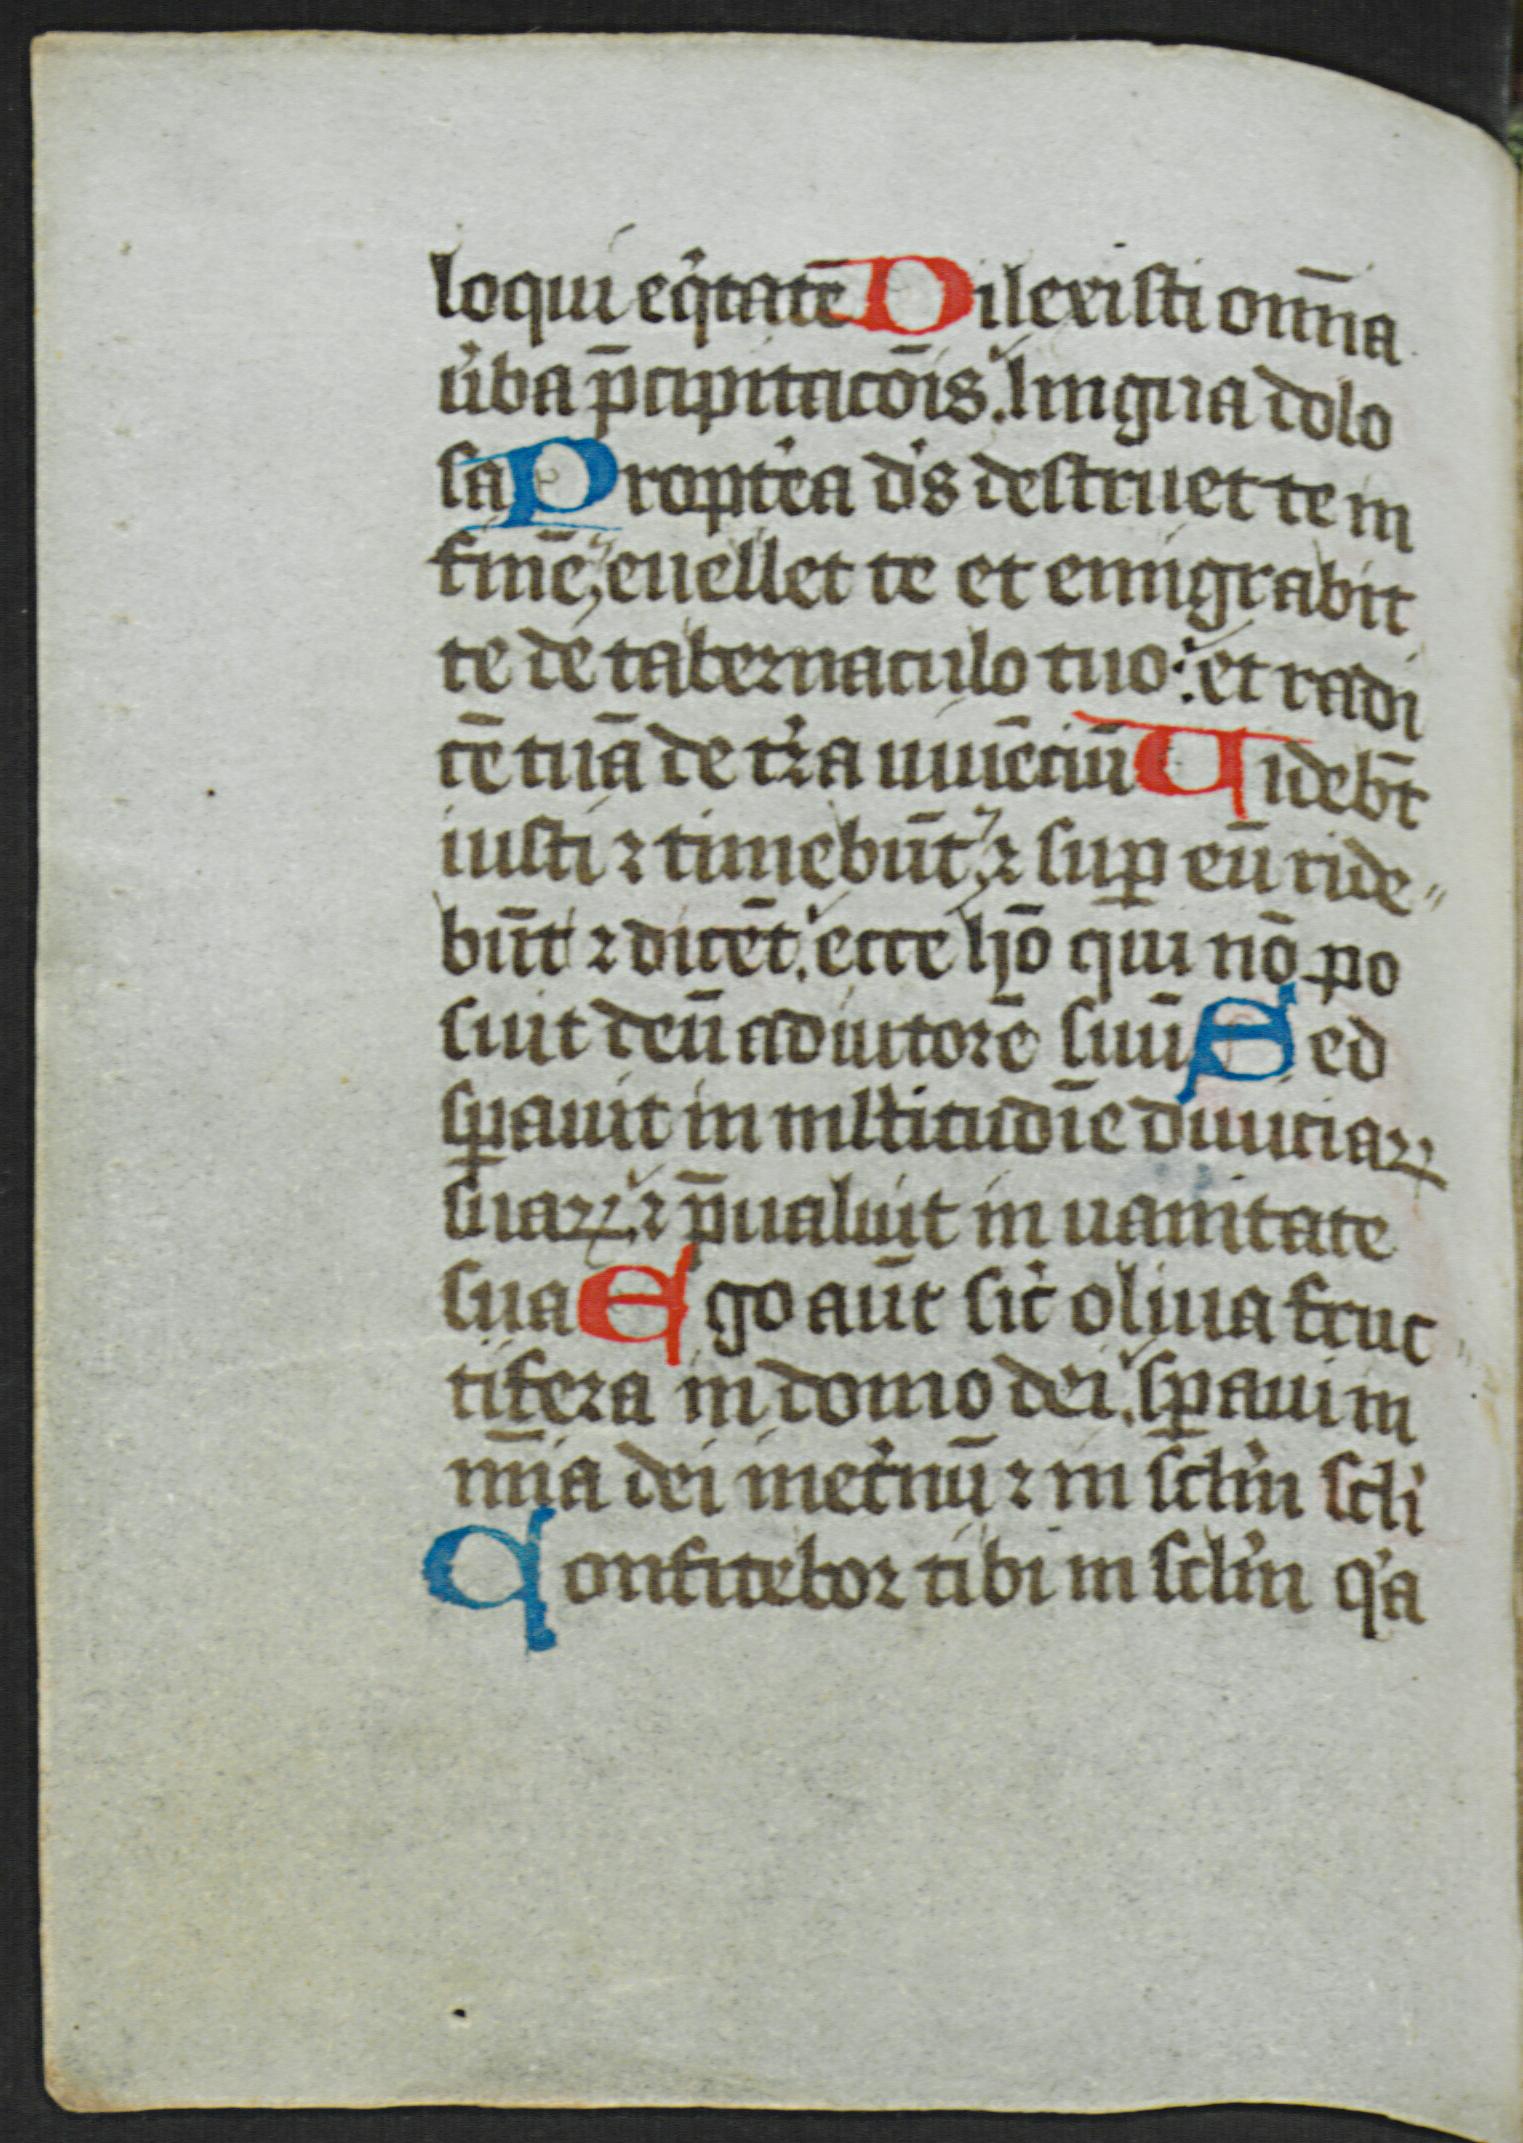 loqui eq̍tatē Dilexisti om̄ia
u̍ba p̄cipitacōis. lingua dolo
sa Propt̍ea d̍s destruet te in
finē, euellet te et emigrabit
te de tabernaculo tuo: et radi
cē tuā de t̍ra uiuēciū Videbt̄
iusti ⁊ timebūt, ⁊ suꝑ eū ride〃
būt ⁊ dicēt. ecce hō qui nō po
suit deū adiutorē suū Sed
sꝑauit in ml̄titudīe diuiciaꝝ
suaꝝ. ⁊ p̄ualuit in uanitate
sua Ego aūt sic̍ oliua fruc〃
tifera in domo dei. sꝑaui in
mīa dei inet̍nū ⁊ in sc̄l̍m scl̍i
Confitebor tibi in scl̍m q̍a